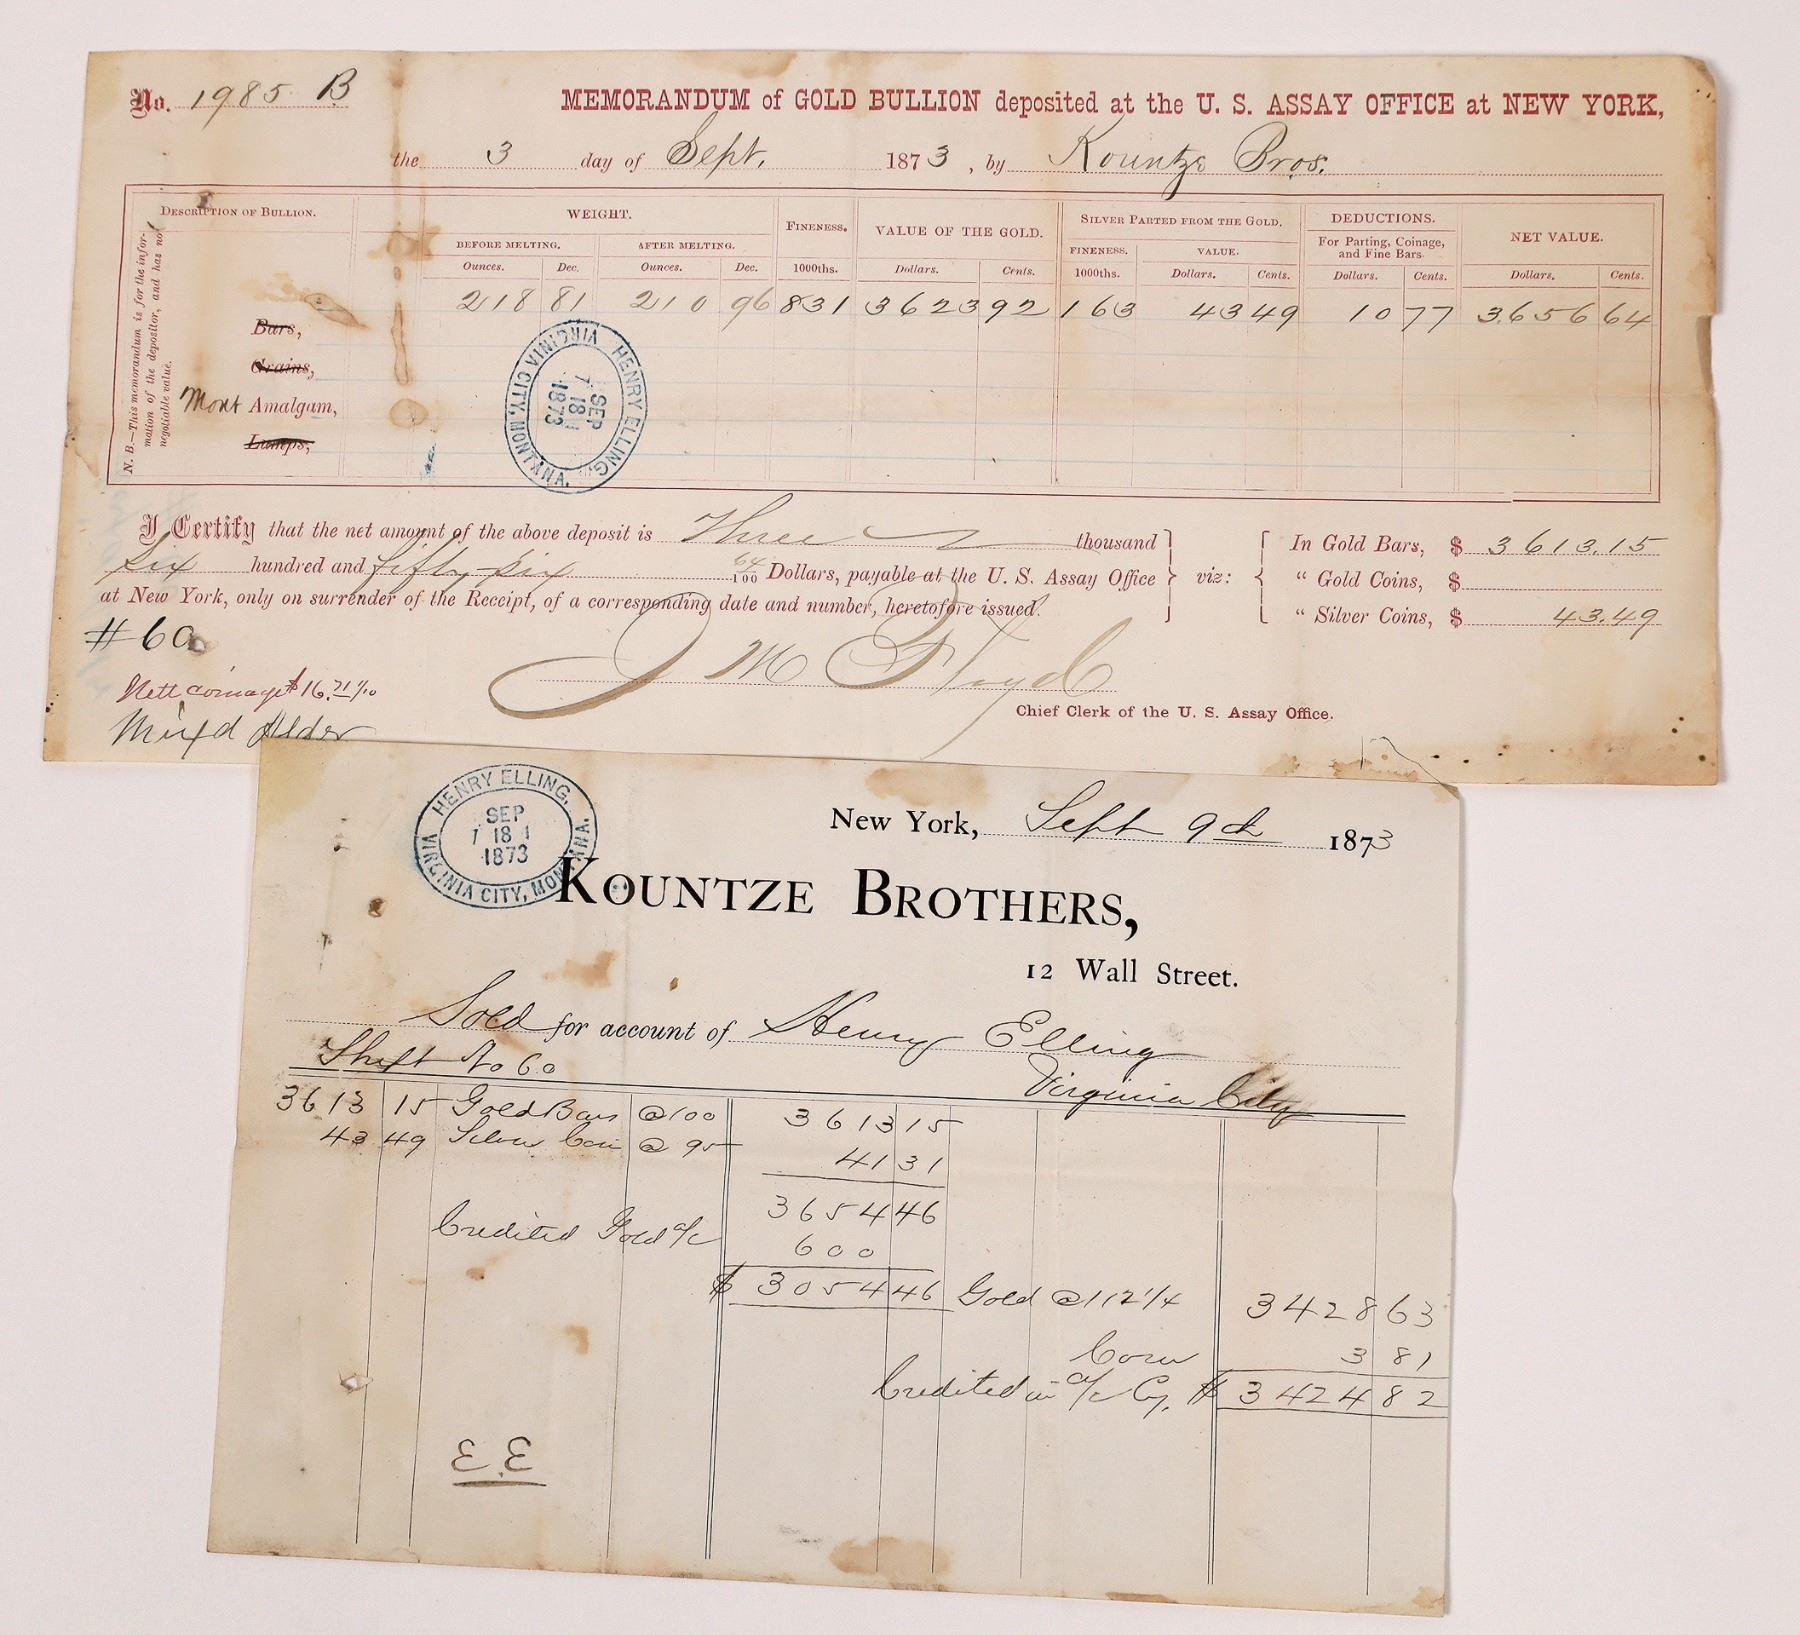 No. 1985 B
MEMORANDUM of GOLD BULLION deposited at the U. S. ASSAY OFFICE at NEW YORK,
the 3 day of Sept. 1873, by Kountze Bros.
N. B.—This memorandum is for the information of the depositor, and has no negotiable value.
DESCRIPTION OF BULLION. WEIGHT. FINENESS. VALUE OF THE GOLD. SILVER PARTED FROM THE GOLD. DEDUCTIONS. NET VALUE.
BEFORE MELTING. AFTER MELTING. FINENESS. VALUE. For Parting, Coinage, and Fine Bars.
Ounces. Dec. Ounces. Dec. 1000ths. Dollars. Cents. 1000ths. Dollars. Cents. Dollars. Cents. Dollars. Cents.
218 81 210 96 831 3623 92 163 43 49 10 77 3656 64
Bars,
Grains,
Mont Amalgam,
Lumps,
HENRY ELLING,
SEP
7 18 1
1873
VIRGINIA CITY, MONTANA.
I Certify that the net amount of the above deposit is Three thousand
Six hundred and fifty-six 64/100 Dollars, payable at the U. S. Assay Office
at New York, only on surrender of the Receipt, of a corresponding date and number, heretofore issued.
viz:
In Gold Bars, $ 3613.15
" Gold Coins, $
" Silver Coins, $ 43.49
#60
Nett coinage $16.71 1/10
Mixd Alder
J M Floyd
Chief Clerk of the U. S. Assay Office.
HENRY ELLING,
SEP
7 18 1
1873
VIRGINIA CITY, MONTANA.
New York, Sept 9th 1873
KOUNTZE BROTHERS,
12 Wall Street.
Sold for account of Henry Elling
Shift No 60 Virginia City
3613 15 Gold Bars @ 100 3613 15
43 49 Silver Coin @ 95 41 31
3654 46
Credited Gold a/c 600
$ 3054 46 Gold @ 112 1/4 3428 63
3 81
Credited in a/c Cy. $ 3424 82
E.E